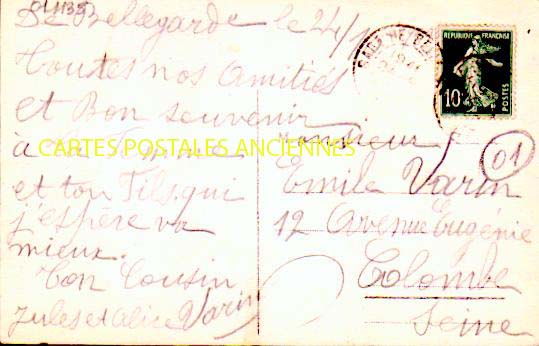 De Bellegarde le 24/1
Toutes nos amitiés
et Bon souvenir
à ta Femme
et ton Fils qui
j'espère va
mieux.
Ton Cousin
Jules et Alice Varin
CARTES POSTALES ANCIENNES
REPUBLIQUE FRANÇAISE
10c
POSTES
01
Monsieur
Emile Varin
12 Avenue Eugénie
Colombe
Seine